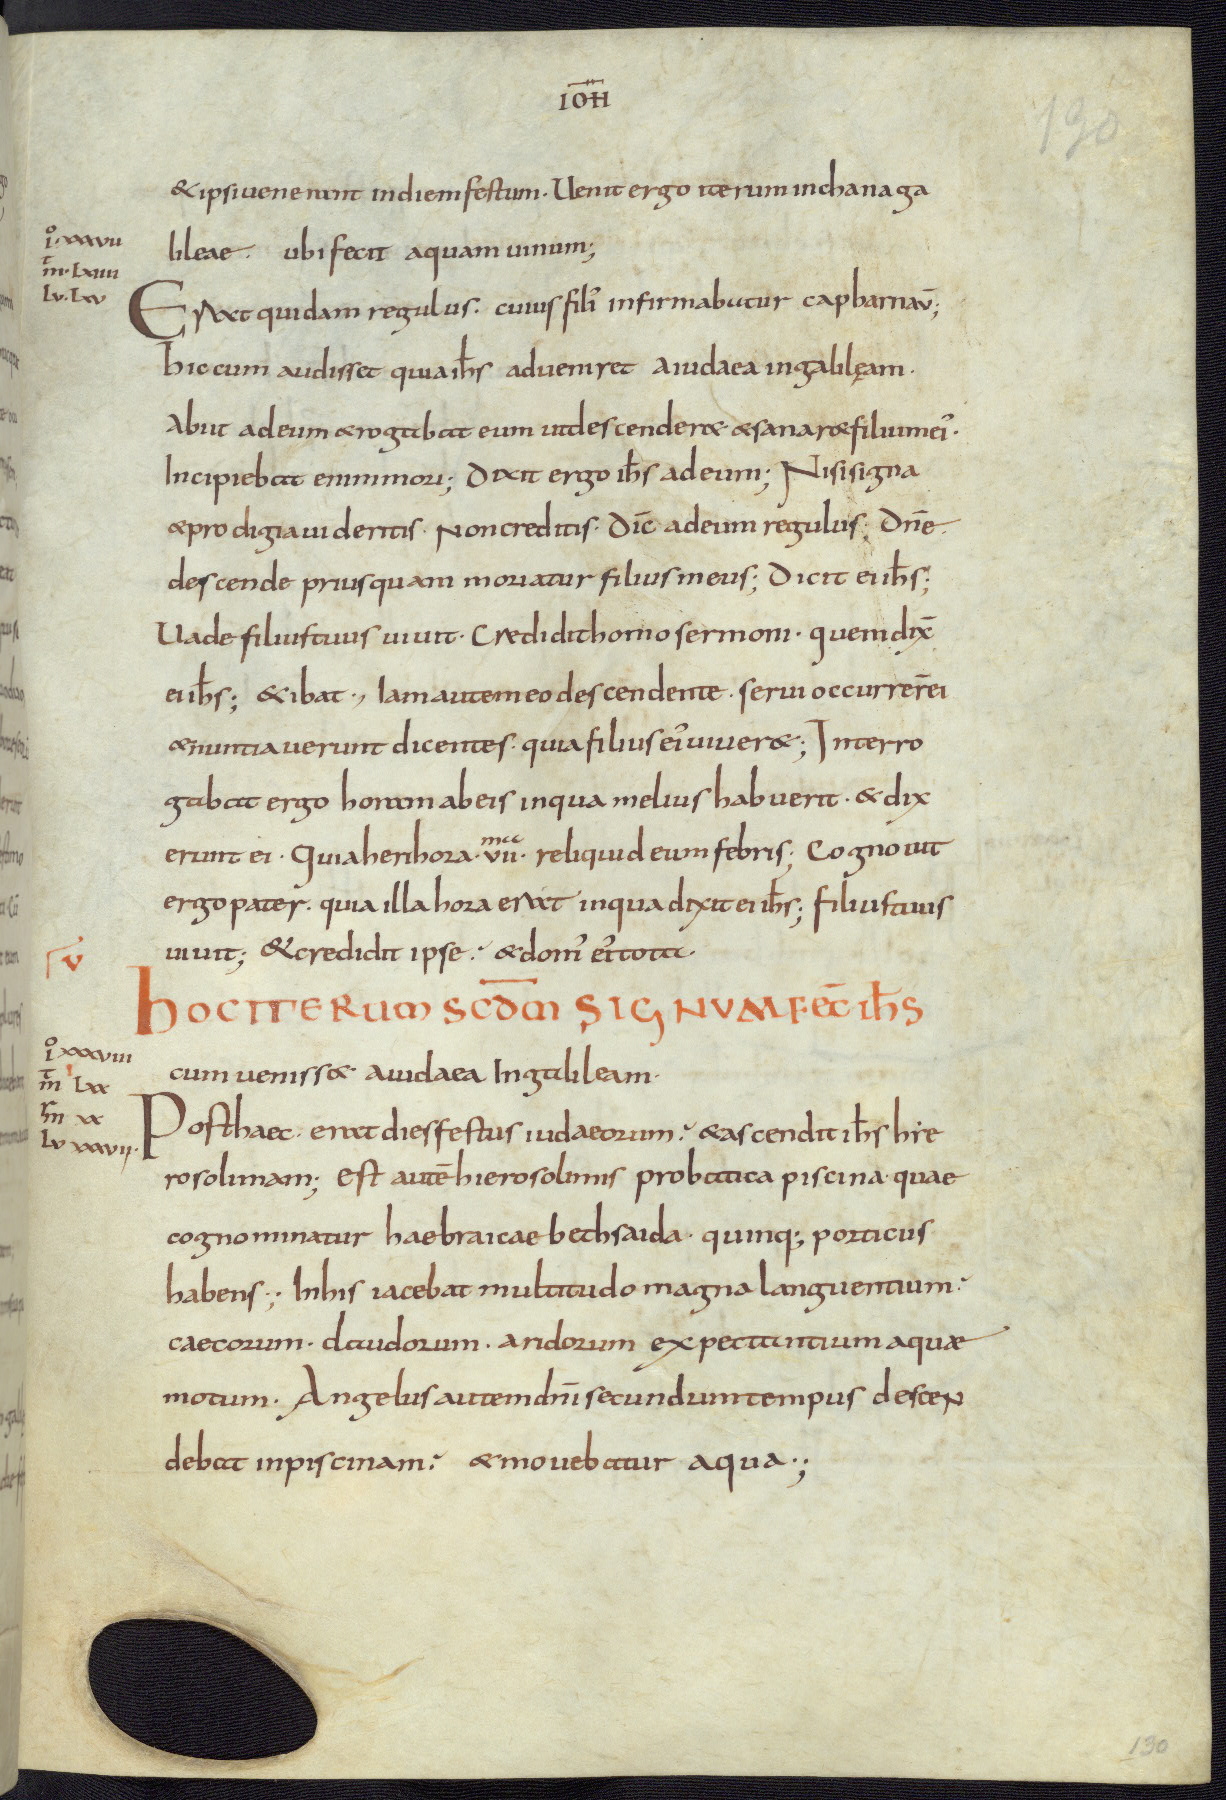 IOH̅
190
& ipsi venerunt in diem festum. Uenit ergo iterum in chana ga
lileae. ubi fecit aquam uinum;
i xxxvii
m lxiiii
Lu lxv
Erat quidam regulus. cuius fili' infirmabatur capharnau̅;
hic cum audisset quia ih̅s adueniret a iudaea in galilęam.
Abiit ad eum & rogabat eum ut descender& & sanar& filium ei'.
Incipiebat enim mori; Dixit ergo ih̅s ad eum; Nisi signa
& prodigia uideritis. Non creditis. Dic̅ ad eum regulus; Dn̅e.
descende priusquam moriatur filius meus; Dicit ei ih̅s;
Uade filius tuus uiuit. Credidit homo sermoni. quem dix̅
ei ih̅s; & ibat., Iam autem eo descendente. serui occurrer̅ ei
& nuntiauerunt dicentes. quia filius ei' uiuer&; Interro
gabat ergo horam ab eis in qua melius habuerit. & dix
erunt ei. Quia heri hora .vii. reliquid eum febris; Cognouit
ergo pater. quia illa hora erat in qua dixit ei ih̅s; filius tuus
uiuit; & credidit ipse. & dom' ei' tota.
v
hoc ITERUM SCD̅M SIGNUM FEC̅ ih̅s
cum veniss& a iudaea In galileam.
i xxxviii
m lxx
h̅n xx
Lu xxxvii.
Post haec. erat dies festus iudaeorum. & ascendit ih̅s hie
rosolimam; Est aute̅ hierosolimis probatica piscina. quae
cognominatur haebraicae bethsaida. quinq; porticus
habens.; In his iacebat multitudo magna languentium.
caecorum. claudorum. aridorum expectantium aquae
motum. Angelus autem dn̅i secundum tempus descen
debat in piscinam. & mouebatur aqua.;
130